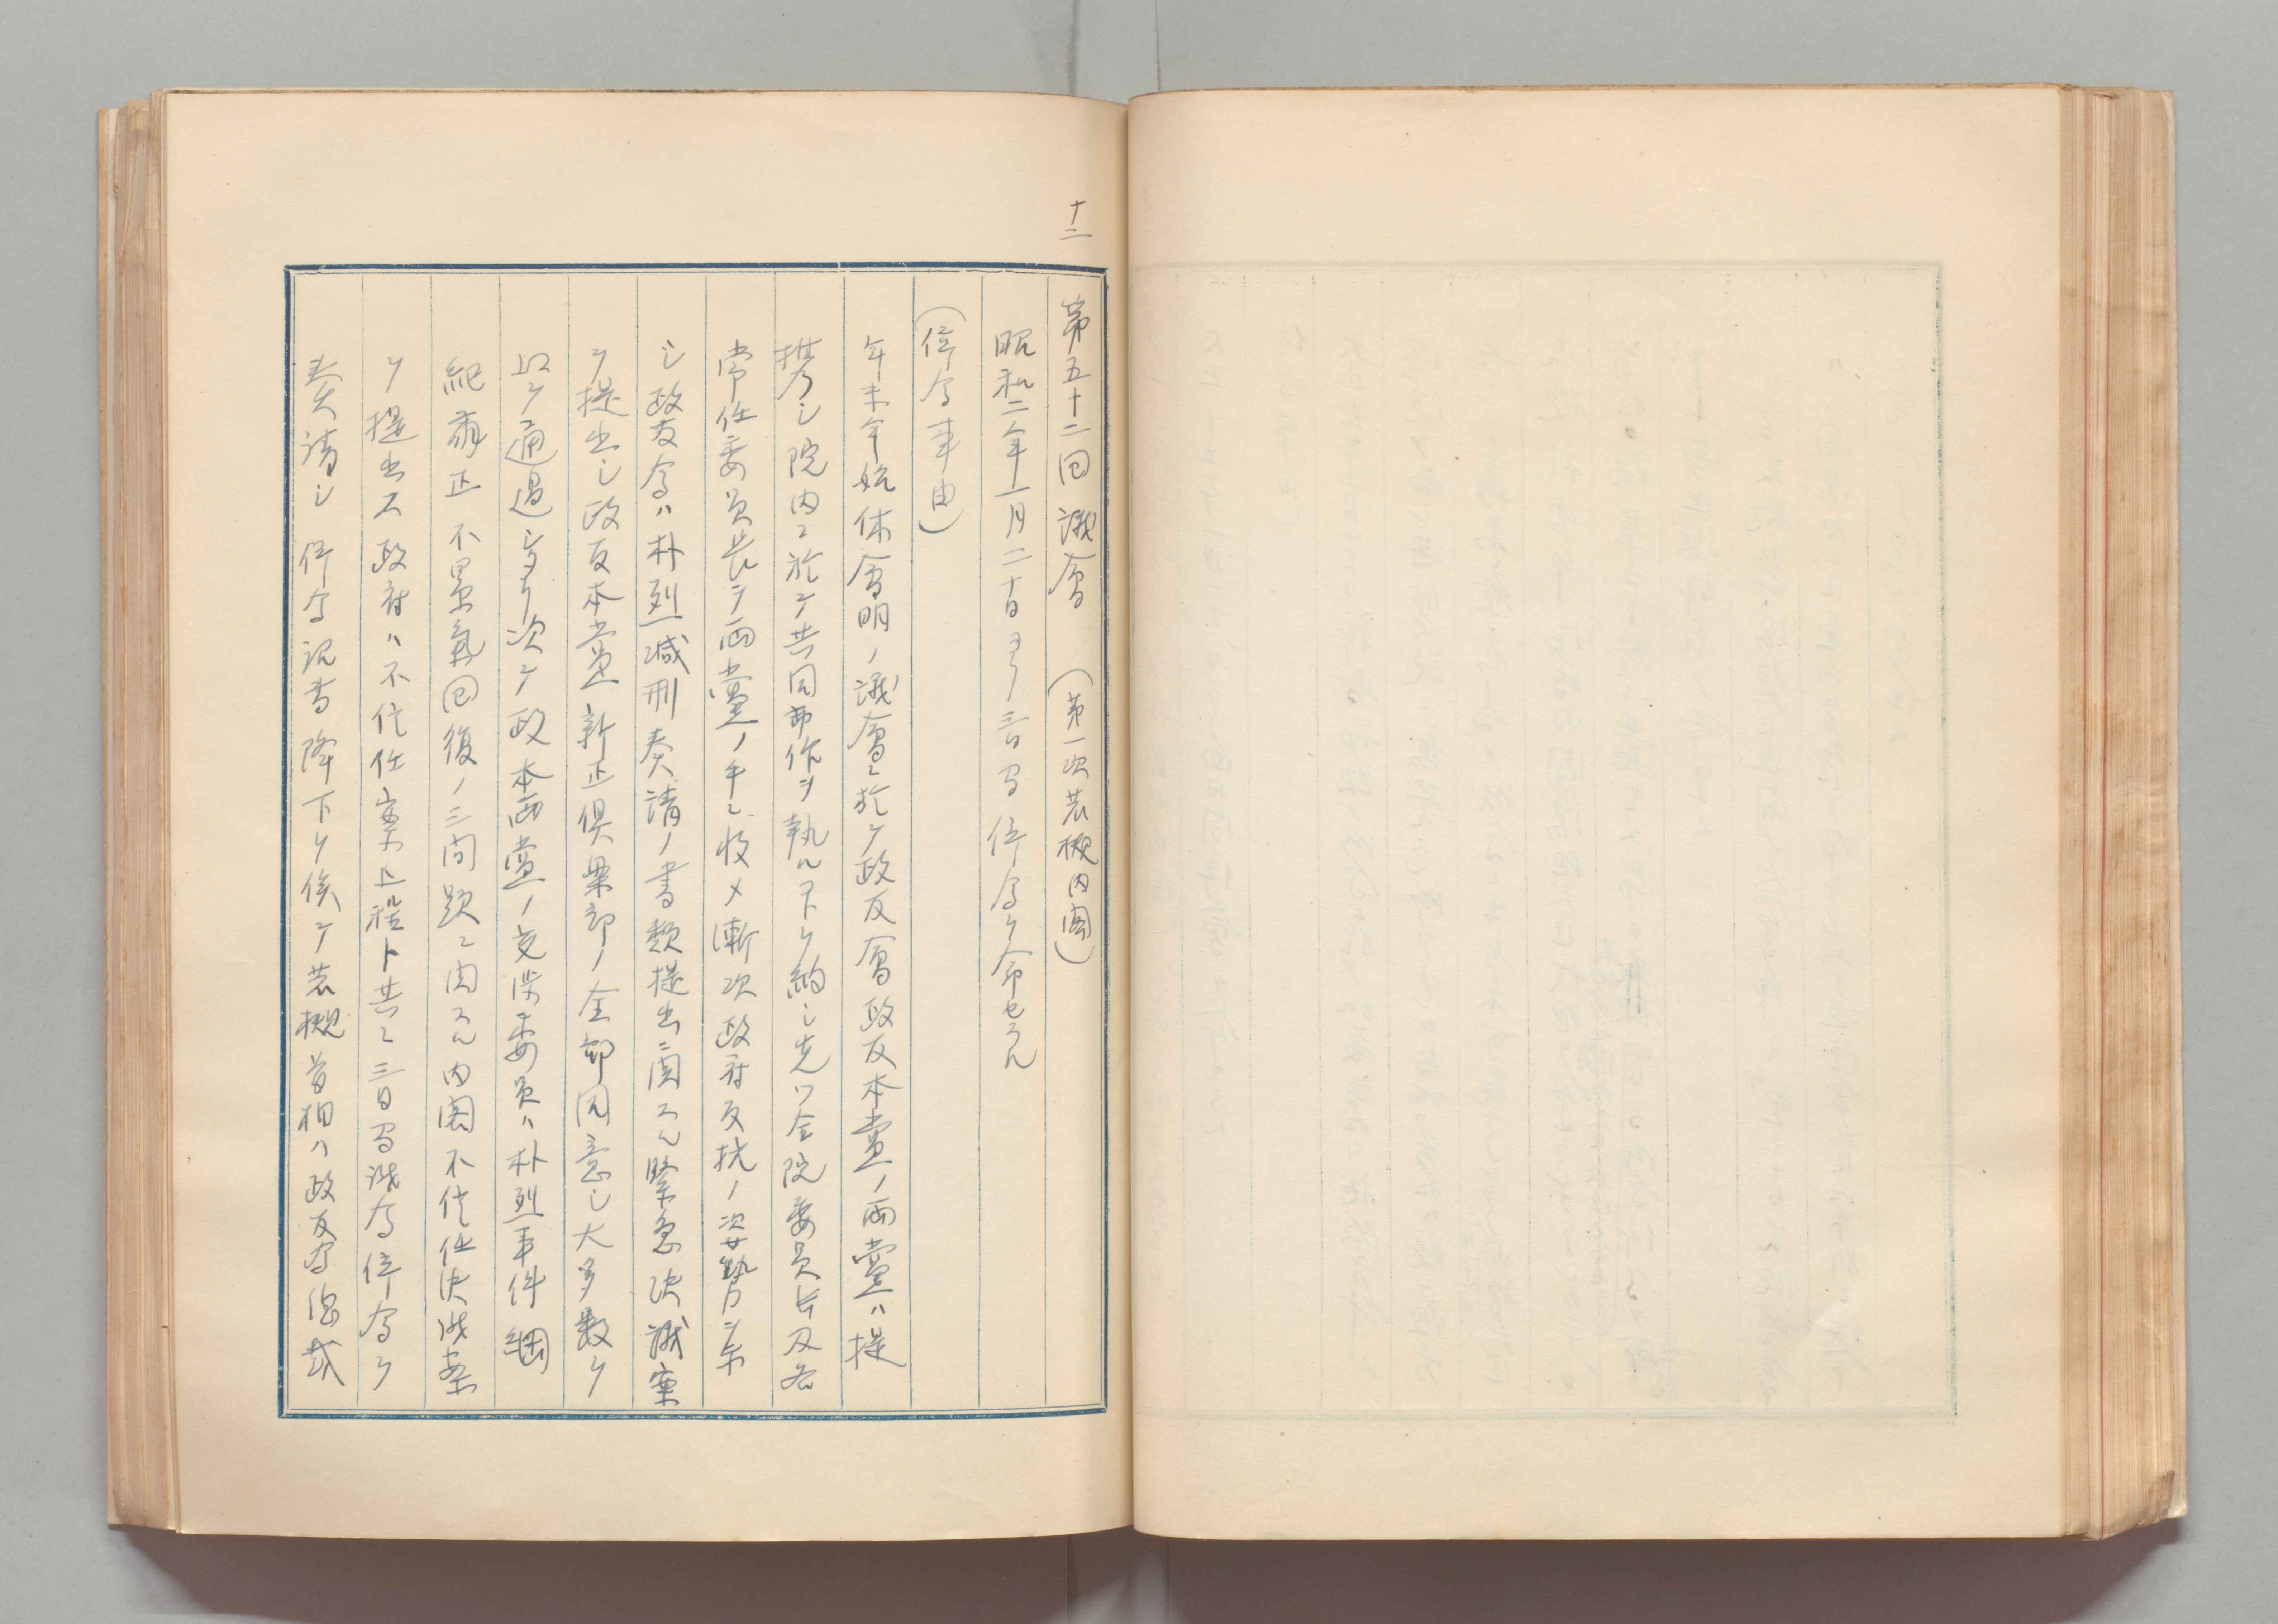 十二
第五十二回議會 (第一次若槻内閣)
昭和二年一月二十日ヨリ三日間停會ヲ命セラル
(停會事由)
年末年始休會明ノ議會ニ於テ政友會政友本黨ノ両黨ハ提
携シ院内ニ於テ共同動作ヲ執ルコトヲ約シ先ツ全院委員長及各
常任委員長ヲ両黨ノ手ニ收メ漸次政府反抗ノ姿勢ヲ示
シ政友會ハ朴烈減刑奏請ノ書類提出ニ関スル緊急決議案
ヲ提出シ政友本黨新正倶楽部ノ全部同意シ大多数ヲ
以テ通過シタリ次テ政本両黨ノ交渉委員ハ朴烈事件綱
紀粛正不景氣回復ノ三問題ニ関スル内閣不信任決議案
ヲ提出ス政府ハ不信任案上程ト共ニ三日間議會停會ヲ
奏請シ停會詔書降下ヲ俟テ若槻首相ハ政友會総裁